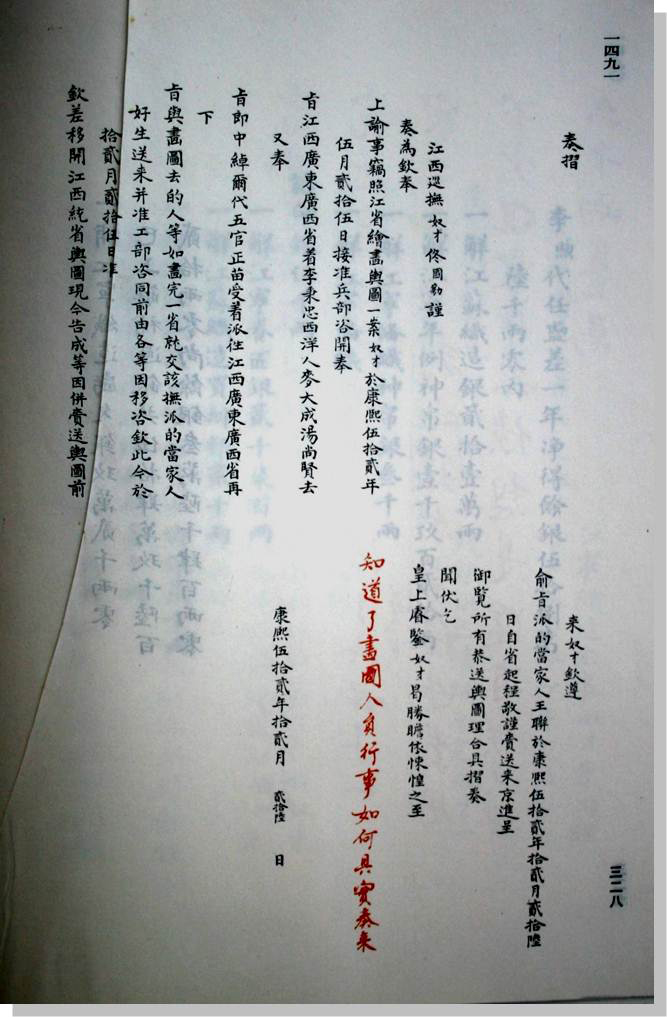 一四九一
奏摺
江西巡撫奴才佟國勷謹
奏為欽奉
上諭事竊照江省繪畫輿圖一案奴才於康熙伍拾貳年
伍月貳拾伍日接准兵部咨開奉
旨江西廣東廣西省着李秉忠西洋人麥大成湯尚賢去
又奉
旨郎中綽爾代五官正苗受着派往江西廣東廣西省再
下
旨與畫圖去的人等如畫完一省就交該撫派的當家人
好生送來并准工部咨同前由各等因移咨欽此今於
拾貳月貳拾伍日准
欽差移開江西統省輿圖現今告成等因併賫送輿圖前
來奴才欽遵
俞旨派的當家人王聯於康熙伍拾貳年拾貳月貳拾陸
日自省起程敬謹賫送來京進呈
御覽所有恭送輿圖理合具摺奏
聞伏乞
皇上睿鑒奴才曷勝瞻依悚惶之至
知道了畫圖人員行事如何具實奏來
康熙伍拾貳年拾貳月 貳拾陸 日
三二八